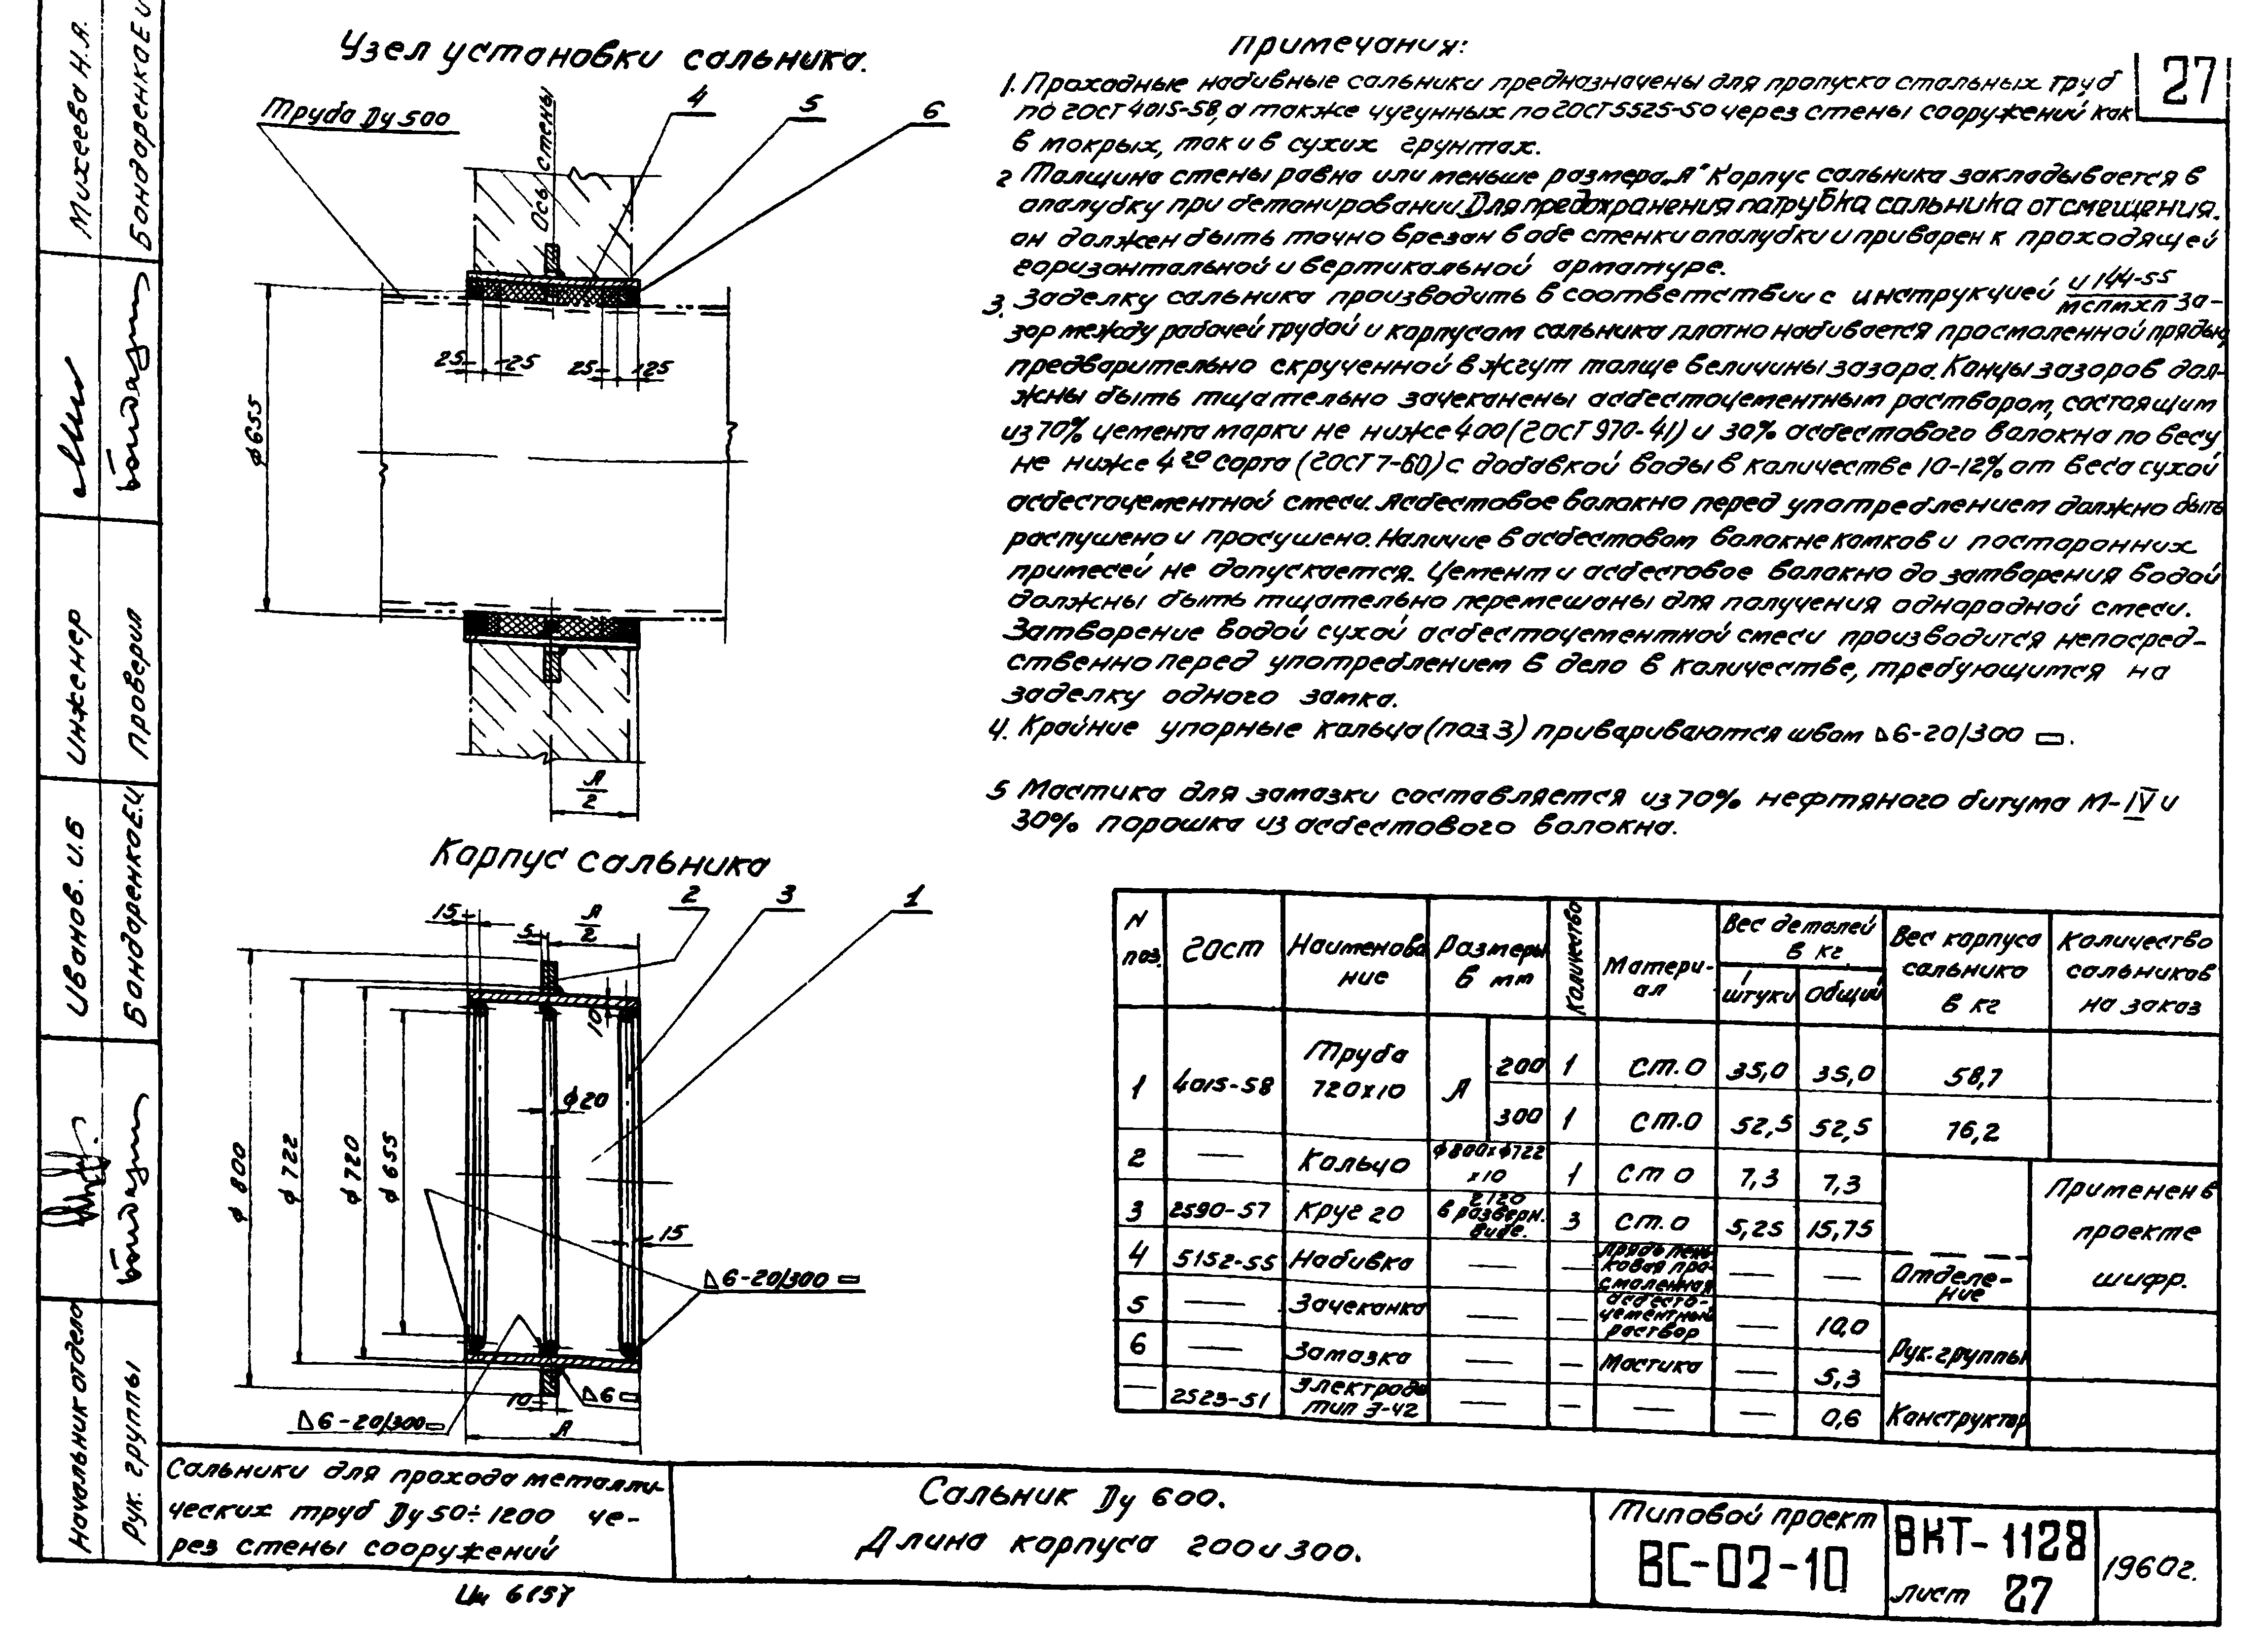 Узел установки сальника.
Труба Ду 500
Ось стены
4
5
6
ф655
25
25
25
25
А
2
Корпус сальника
2
3
1
15
5
А
2
10
ф20
ф 800
ф 722
ф 720
ф 655
15
Δ6-20/300
Δ6
Δ6-20/300
10
А
Примечания:
27
1. Проходные набивные сальники предназначены для пропуска стальных труб
по ГОСТ 4015-58, а также чугунных по ГОСТ 5525-50 через стены сооружений как
в мокрых, так и в сухих грунтах.
2 Толщина стены равна или меньше размера „А" Корпус сальника закладывается в
опалубку при бетонировании. Для предохранения патрубка сальника от смещения.
он должен быть точно врезан в обе стенки опалубки и приварен к проходящей
горизонтальной и вертикальной арматуре.
3. Заделку сальника производить в соответствии с инструкцией И 144-55 / МСПМХП За-
зор между рабочей трубой и корпусом сальника плотно набивается просмоленной прядью,
предварительно скрученной в жгут толще величины зазора. Концы зазоров дол-
жны быть тщательно зачеканены асбестоцементным раствором, состоящим
из 70% цемента марки не ниже 400 (ГОСТ 970-41) и 30% асбестового волокна по весу
не ниже 4го сорта (ГОСТ 7-60) с добавкой воды в количестве 10-12% от веса сухой
асбестоцементной смеси. Асбестовое волокно перед употреблением должно быть
распушено и просушено. Наличие в асбестовом волокне комков и посторонних
примесей не допускается. Цемент и асбестовое волокно до затворения водой
должны быть тщательно перемешаны для получения однородной смеси.
Затворение водой сухой асбестоцементной смеси производится непосред-
ственно перед употреблением в дело в количестве, требующимся на
заделку одного замка.
4. Крайние упорные кольца (поз 3) привариваются швом Δ6-20/300 .
5 Мастика для замазки составляется из 70% нефтяного битума М-IV и
30% порошка из асбестового волокна.
N поз. ГОСТ Наименование Размеры в мм Количество Матери-ал Вес деталей в кг 1 штуки Общий Вес корпуса сальника в кг Количество сальников на заказ
1 4015-58 Труба 720х10 А 200 1 Ст. 0 35,0 35,0 58,7
300 1 Ст.0 52,5 52,5 76,2
2 — Кольцо ф800хф722 х10 1 Ст 0 7,3 7,3
3 2590-57 Круг 20 2120 в разверн. виде. 3 Ст. 0 5,25 15,75
4 5152-55 Набивка — — Прядь пень-ковая про-смоленная — —
5 — Зачеканка — — Асбесто-цементный раствор — 10,0
6 — Замазка — — Мастика — 5,3
— 2523-51 Электроды тип Э-42 — — — — 0,6
Применен в
проекте
шифр.
Отделе-
ние
Рук. группы
Конструктор
Михеева Н.А.
Бондаренко Е.И
Инженер
Проверил
Иванов. И.Б
Бондаренко Е.И.
Начальник отдела
Рук. группы
Сальники для прохода металли-
ческих труб Ду 50÷1200 че-
рез стены сооружений
Сальник Ду 600.
Длина корпуса 200 и 300.
Типовой проект
ВС-02-10
ВКТ-1128
лист 27
1960г.
Ин 6157